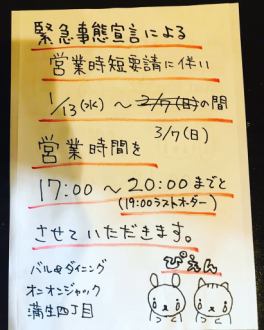 緊急事態宣言による
営業時短要請に伴い
1/13(水) ～ 2/7(日)の間
3/7(日)
営業時間を
17:00 ～ 20:00までと
(19:00ラストオーダー)
させていただきます。
ぴえん
バル&ダイニング
オニオンジャック
蒲生四丁目